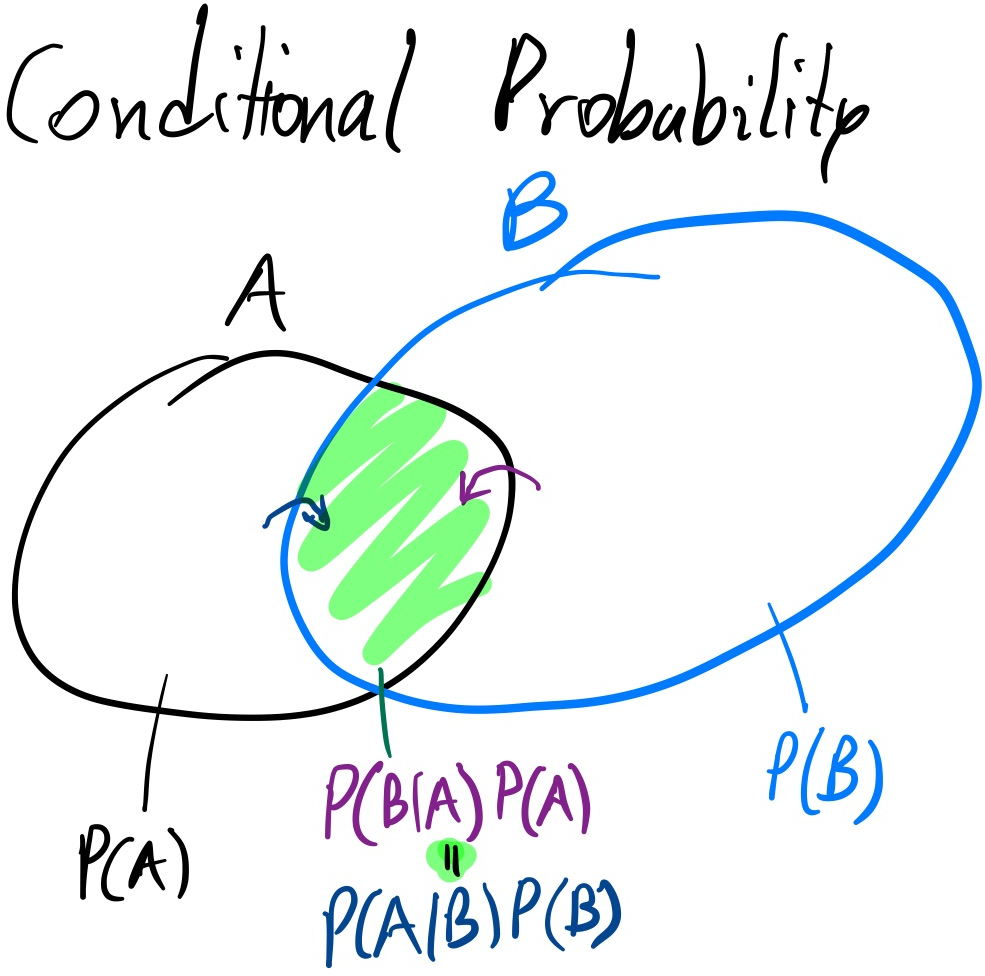 Conditional Probability
B
A
P(B)
P(B|A)P(A)
=
P(A)
P(A|B)P(B)